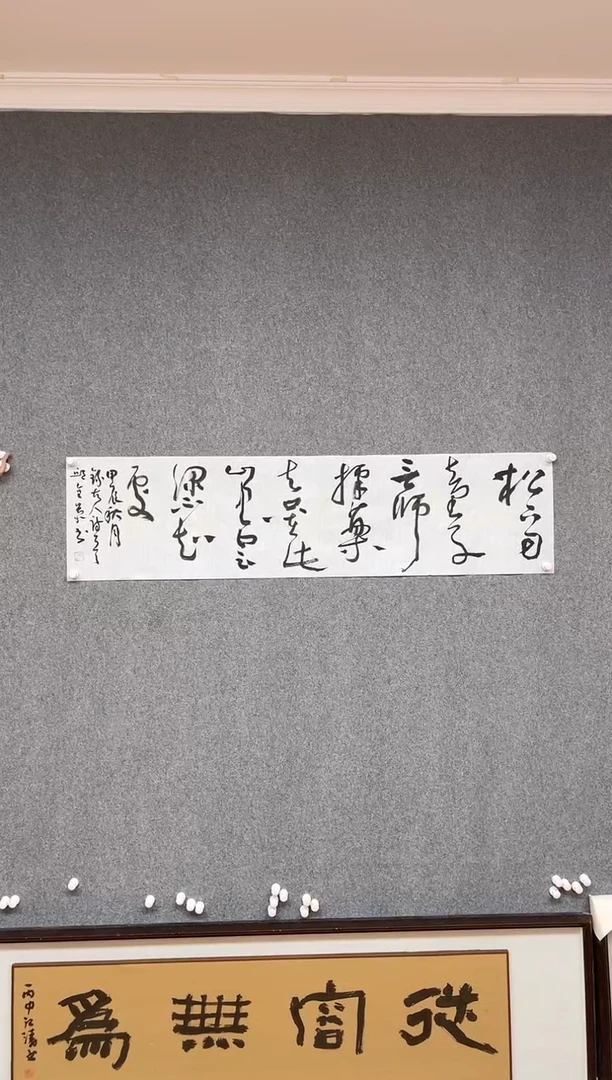 松下问
童子
言师
採藥
去只在此
山中云
深不知
處
甲辰秋月
錄古人詩
從容無為
丙申